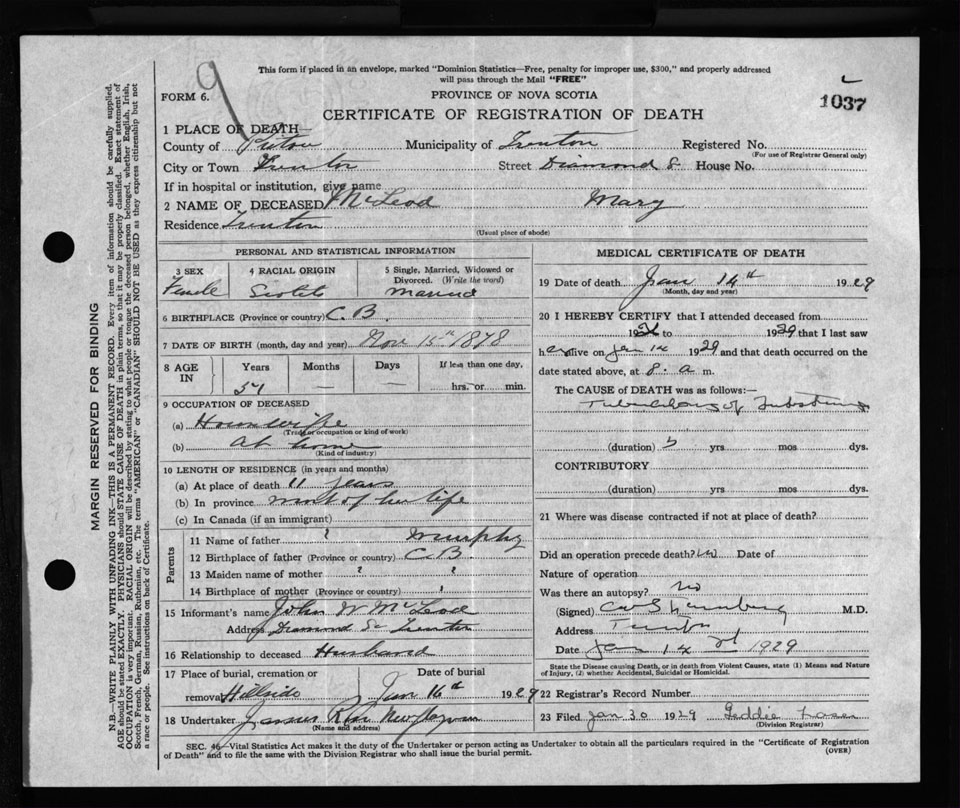 9
This form if placed in an envelope, marked "Dominion Statistics—Free, penalty for improper use, $300," and properly addressed
will pass through the Mail "FREE"
FORM 6.
PROVINCE OF NOVA SCOTIA
1037
CERTIFICATE OF REGISTRATION OF DEATH
1 PLACE OF DEATH—
County of Pictou Municipality of Trenton Registered No.
(For use of Registrar General only)
City or Town Trenton Street Diamond St House No.
If in hospital or institution, give name
2 NAME OF DECEASED McLeod Mary
Residence Trenton
(Usual place of abode)
PERSONAL AND STATISTICAL INFORMATION
3 SEX
Female
4 RACIAL ORIGIN
5 Single, Married, Widowed or
Divorced. (Write the word)
Married
6 BIRTHPLACE (Province or country) C.B.
7 DATE OF BIRTH (month, day and year) Nov 15th 1878
8 AGE
IN
Years
Months
—
Days
—
If less than one day,
hrs. or min.
9 OCCUPATION OF DECEASED
(a) Housewife
(Trade or occupation or kind of work)
(b) at home
(Kind of industry)
10 LENGTH OF RESIDENCE (in years and months)
(a) At place of death 11 years
(b) In province most of her life
(c) In Canada (if an immigrant)
Parents
11 Name of father ? Murphy
12 Birthplace of father (Province or country) C B
13 Maiden name of mother ? ?
14 Birthplace of mother (Province or country)
15 Informant's name John W McLeod
Address Diamond St Trenton
16 Relationship to deceased Husband
17 Place of burial, cremation or
removal Hillside
Date of burial
Jan 16th 1929
18 Undertaker James New Glasgow
(Name and address)
MEDICAL CERTIFICATE OF DEATH
19 Date of death Jan 14th 1929
(Month, day and year)
20 I HEREBY CERTIFY that I attended deceased from
192 to 1929 that I last saw
her alive on Jan 14 1929 and that death occurred on the
date stated above, at 8. a m.
The CAUSE of DEATH was as follows:—
Tuberculosis of
(duration) yrs mos dys.
CONTRIBUTORY
(duration) yrs mos dys.
21 Where was disease contracted if not at place of death?
Did an operation precede death? no Date of
Nature of operation
Was there an autopsy? no
(Signed) M.D.
Address Trenton
Date Jan 14 1929
State the Disease causing Death, or in death from Violent Causes, state (1) Means and Nature
of Injury, (2) whether Accidental, Suicidal or Homicidal.
22 Registrar's Record Number
23 Filed Jan 30 1929 Geddie
(Division Registrar)
SEC. 46—Vital Statistics Act makes it the duty of the Undertaker or person acting as Undertaker to obtain all the particulars required in the "Certificate of Registration
of Death" and to file the same with the Division Registrar who shall issue the burial permit.
(OVER)
MARGIN RESERVED FOR BINDING
N.B.—WRITE PLAINLY WITH UNFADING INK—THIS IS A PERMANENT RECORD. Every item of information should be carefully supplied.
AGE should be stated EXACTLY. PHYSICIANS should STATE CAUSE OF DEATH in plain terms, so that it may be properly classified. Exact statement of
OCCUPATION is very important. RACIAL ORIGIN will be described by stating to what people or tongue the deceased person belonged, whether English, Irish,
Scotch, French, German, Russian, Ruthenian, etc. The terms "AMERICAN" or "CANADIAN" SHOULD NOT BE USED as they express citizenship but not
a race or people. See instructions on back of Certificate.